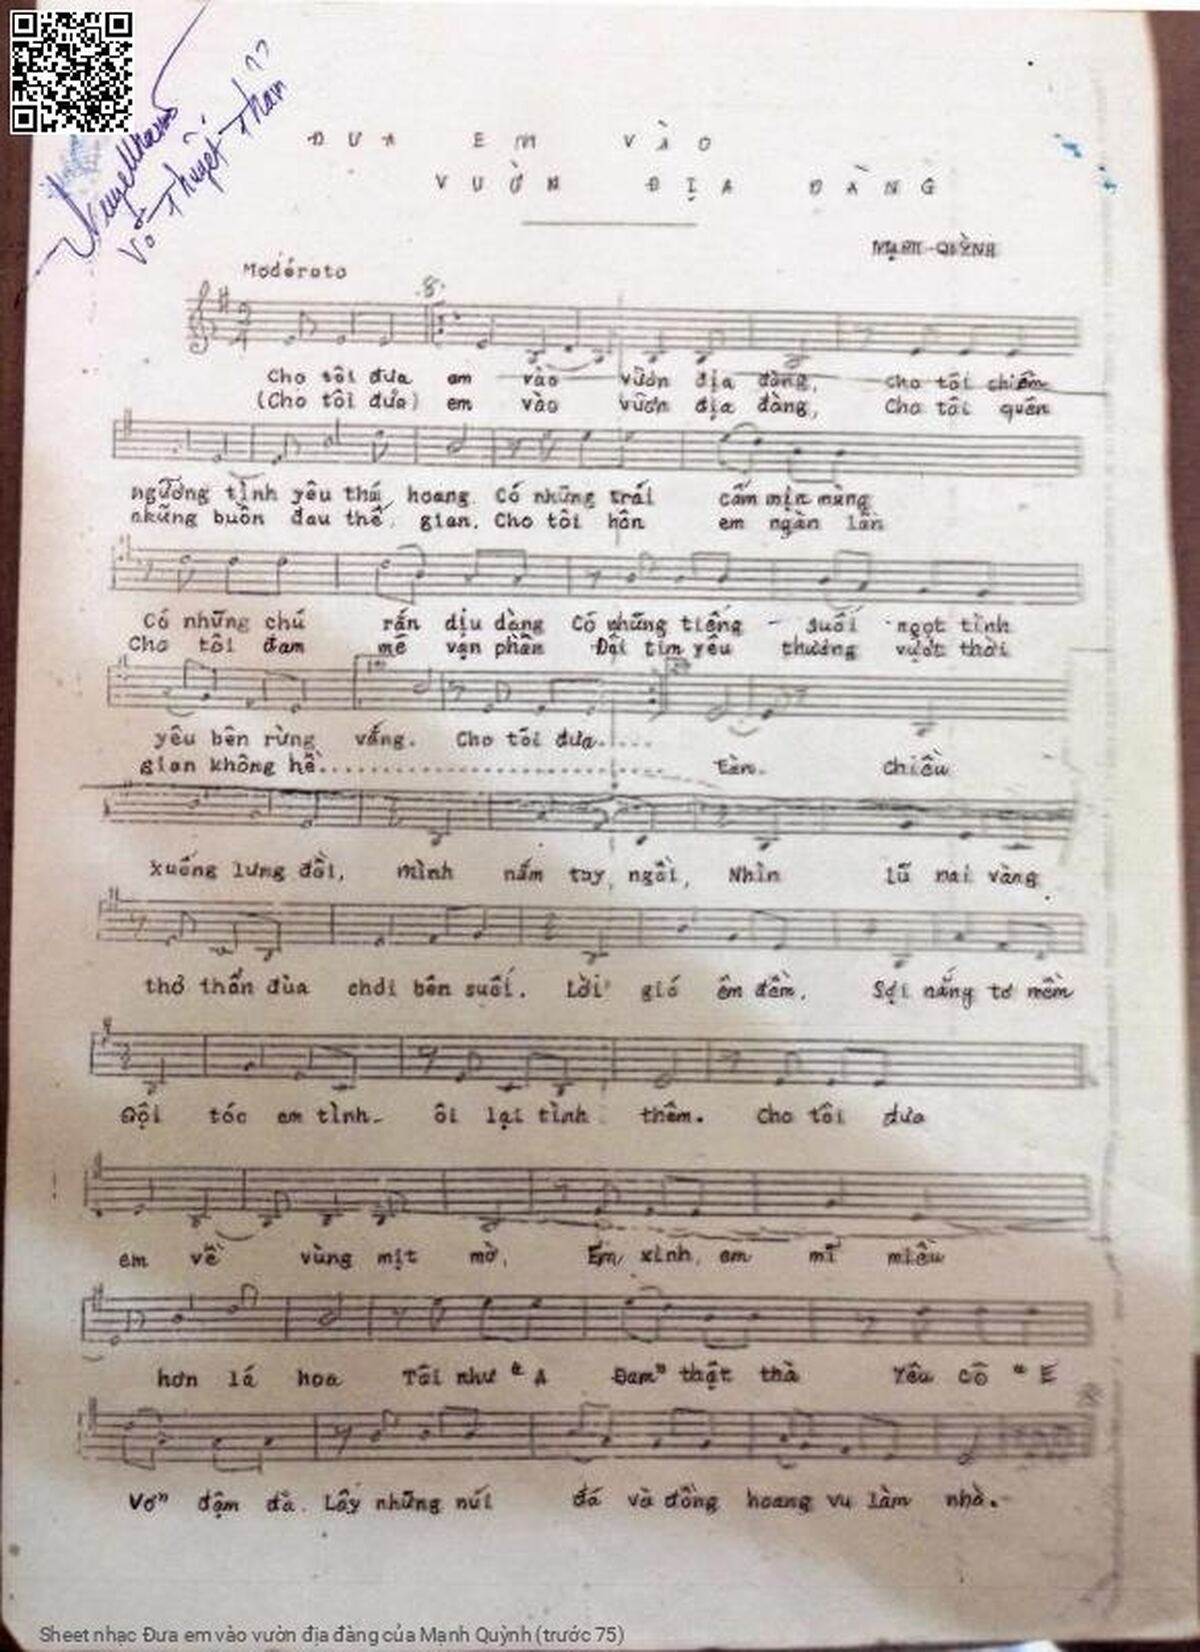 Võ Thuyết Thân
ĐƯA EM VÀO
VƯỜN ĐỊA ĐÀNG
MẠNH-QUỲNH
Modérato
.8.
Cho tôi đưa em vào vườn địa đàng, cho tôi chiêm
(Cho tôi đưa) em vào vườn địa đàng, Cho tôi quên
ngưỡng tình yêu thuả hoang. Có những trái cấm mịn màng
những buồn đau thế gian. Cho tôi hôn em ngàn lần
Có những chú rắn dịu dàng Có những tiếng - suối ngọt tình
Cho tôi đam mê vạn phần Đội tim yêu thương vượt thời
yêu bên rừng vắng. Cho tôi đưa.....
gian không hề........................... tàn. Chiều
xuống lưng đồi, mình nắm tay, ngồi, Nhìn lũ nai vàng
thở thẩn đùa chơi bên suối. Lời gió êm đềm, Sợi nắng tơ mềm
Gội tóc em tình. ôi lại tình thêm. Cho tôi đưa
em về vùng mịt mờ, Em xinh, em mĩ miều
hơn lá hoa Tôi như "A Đam" thật thà Yêu cô "E
Vơ" đậm đà. Lấy những núi đá và đồng hoang vu làm nhà.
Sheet nhạc Đưa em vào vườn địa đàng của Mạnh Quỳnh (trước 75)